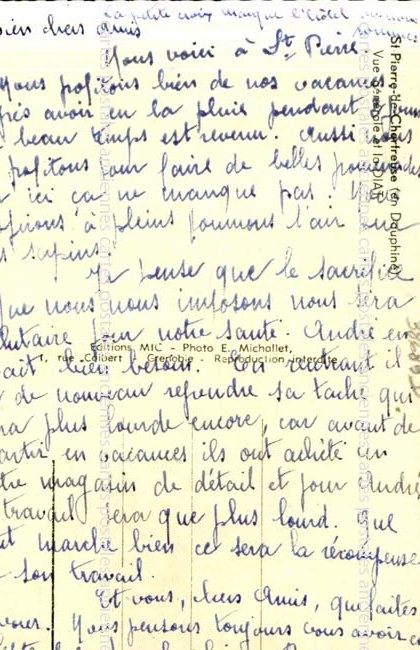 la petite croix marque l'hôtel
bien chers Amis
Nous voici à St Pierre.
Nous profitons bien de nos vacances.
près avoir eu la pluie pendant
beau temps est revenu. Aussi nous
profitons pour faire de belles promenades
ici ça ne manque pas.
à pleins poumons l'air
s sapins.
pense que le sacrifice
que nous nous imposons nous sera
lutaire pour notre santé. André en
ait bien besoin. En rentrant il
de nouveau reprendre sa tâche qui
ra plus lourde encore, car avant de
artir en vacances ils ont acheté un
tre magasin de détail et pour André
travail sera que plus lourd. Que
ut marche bien ce sera la récompense
son travail.
Et vous, chers Amis, que faites
vous. Nous pensons toujours vous avoir
St-Pierre-de-Chartreuse (en Dauphiné)
Vue générale et
Editions MIC - Photo E. Michallet,
1, rue Colbert Grenoble - Reproduction interdite